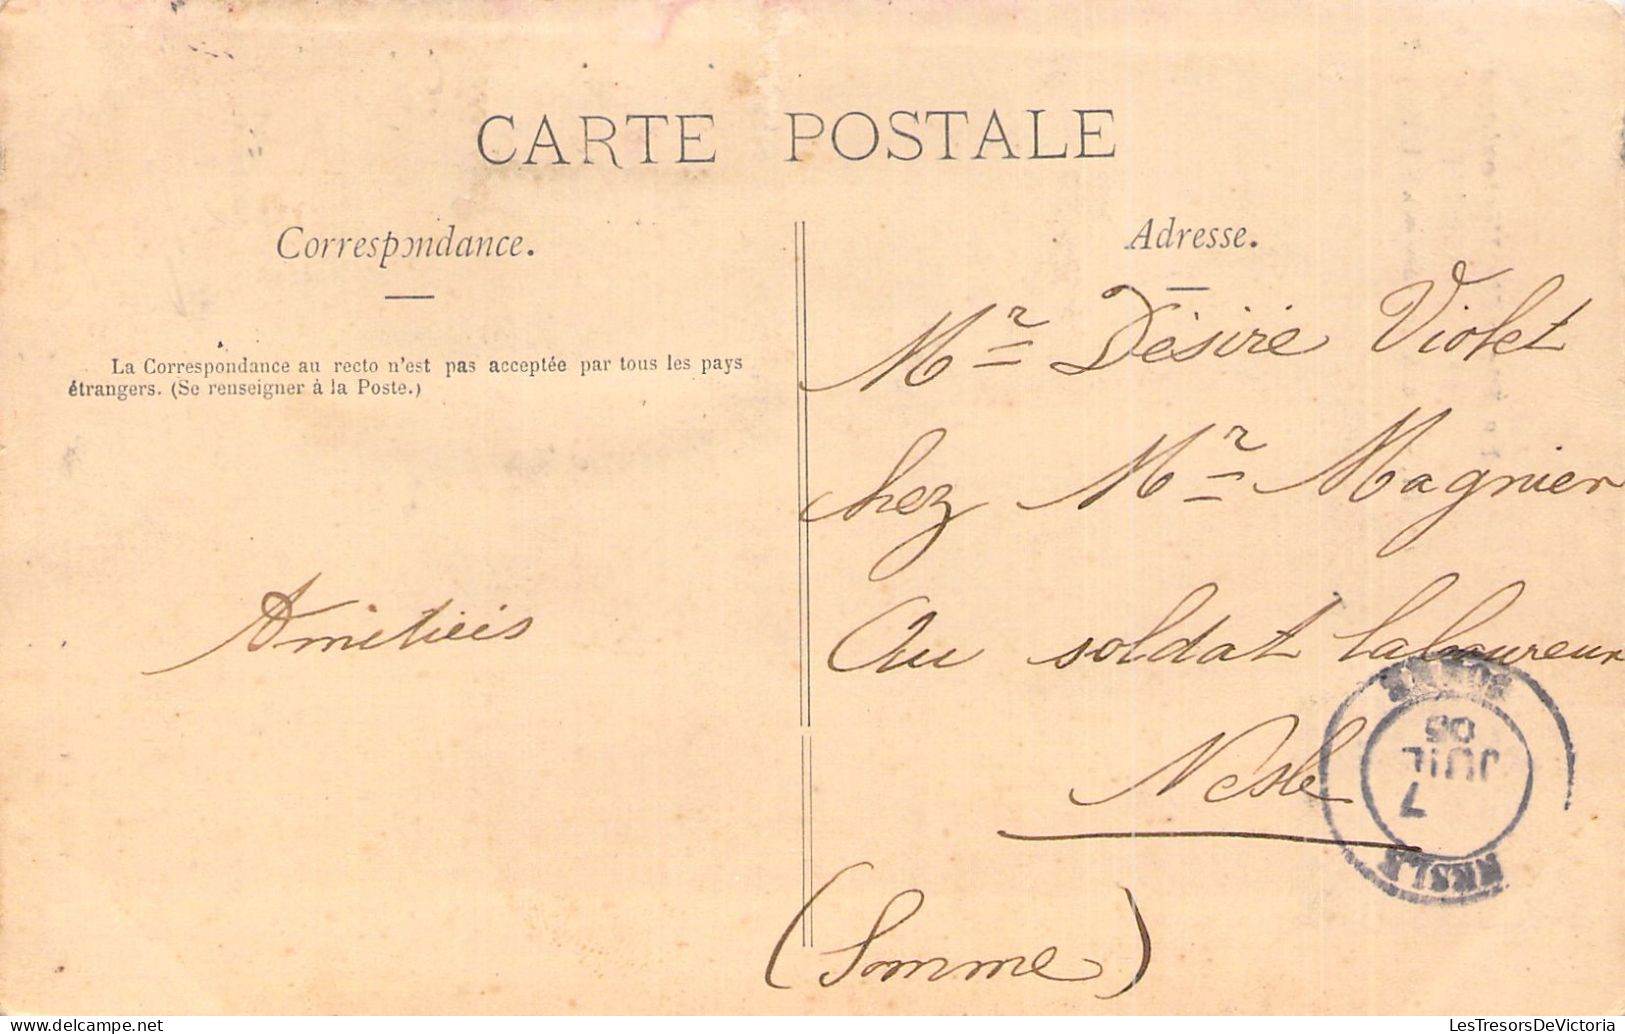 CARTE POSTALE
Correspondance.
La Correspondance au recto n'est pas acceptée par tous les pays
étrangers. (Se renseigner à la Poste.)
Amitiés
Adresse.
Mr Désiré Violet
chez Mr Magnier
Au soldat laboureur
Nesle
(Somme)
NESLE
7
JUIL
05
SOMME
LesTresorsDeVictoria